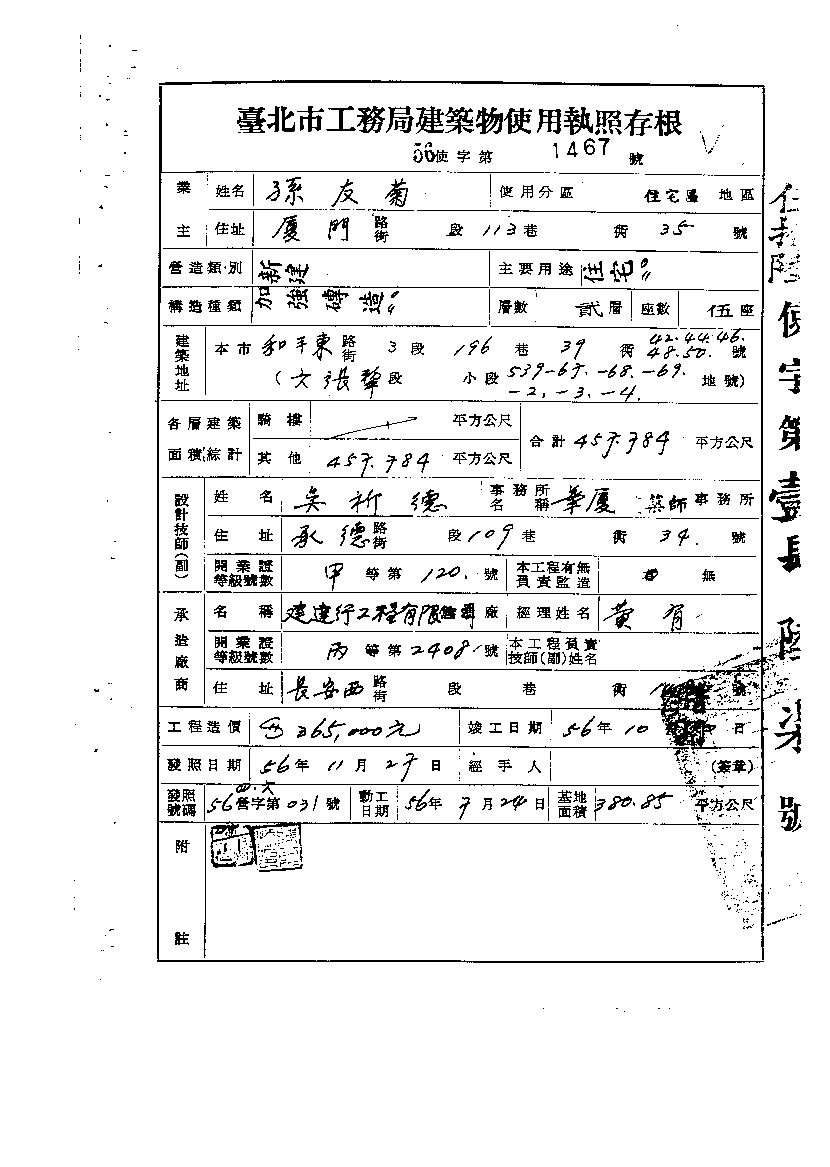 臺北市工務局建築物使用執照存根
56使字第 1467 號
業主 姓名 孫友菊 使用分區 住宅區 地區
住址 廈門 路街 段 113 巷 衖 35 號
營造類別 新建 主要用途 住宅
構造種類 加強磚造 層數 貳層 座數 伍座
建築地址 本市 和平東 路街 3 段 196 巷 39 衖 42.44.46.48.50. 號
(六張犁段 小段 539-67.-68.-69.-2.-3.-4. 地號)
各層建築面積綜計 騎樓 平方公尺 合計 457.784 平方公尺
其他 457.784 平方公尺
設計技師(副) 姓名 吳析德 事務所名稱 華廈 築師事務所
住址 承德 路街 段 109 巷 衖 34. 號
開業證等級號數 甲 等第 120. 號 本工程有無負責監造 無
承造廠商 名稱 建達行工程有限 廠 經理姓名 黃有
開業證等級號數 丙 等第 2408 號 本工程負責技師(副)姓名
住址 長安西 路街 段 巷 衖 號
工程造價 365,000元 竣工日期 56年 10 日
發照日期 56年 11月 27日 經手人 (簽章)
發照號碼 56營字第031號 動工日期 56年 7月 24日 基地面積 380.85 平方公尺
附註
使字第壹 陸柒號